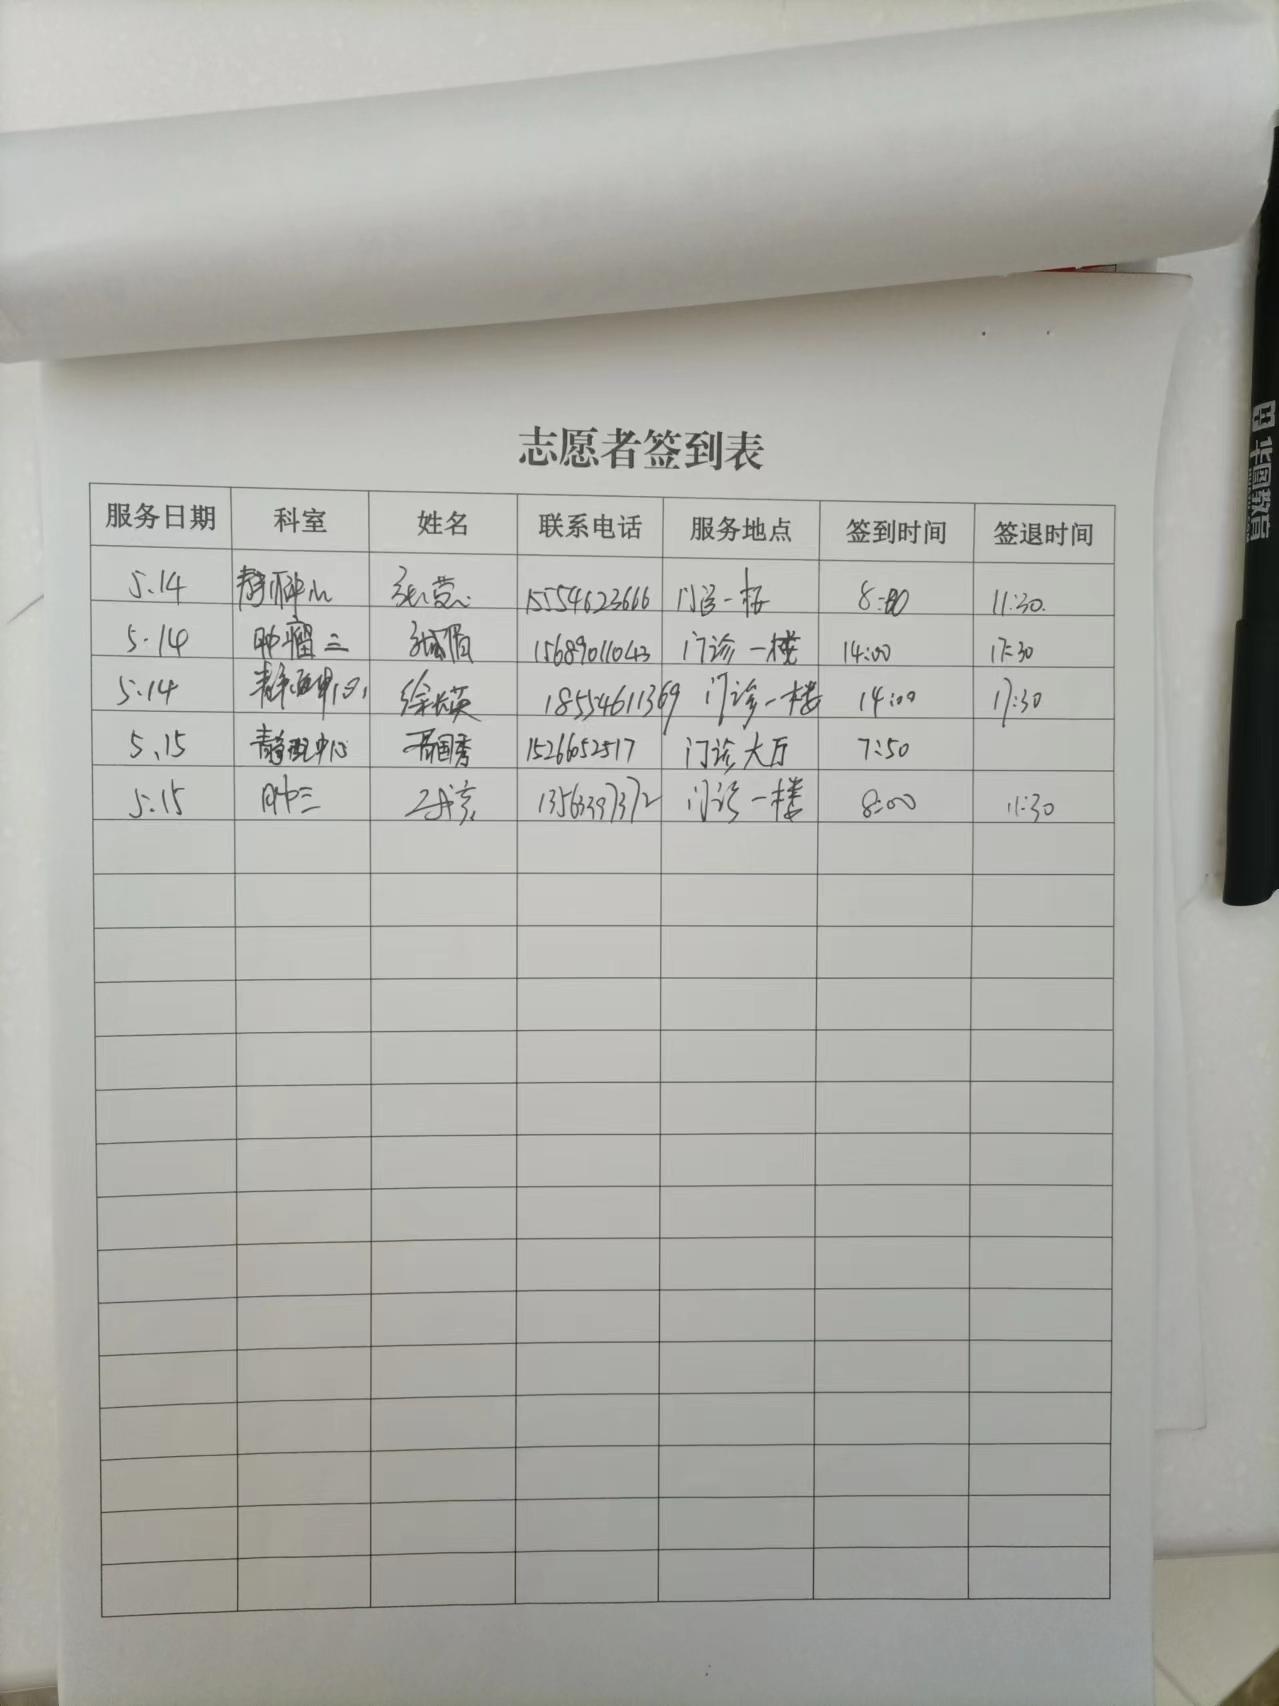 志愿者签到表
服务日期 科室 姓名 联系电话 服务地点 签到时间 签退时间
5.14 15554623666 门诊一楼 8:00 11:30
5.14 肿瘤三 15689011043 门诊一楼 14:00 17:30
5.14 静配中心 徐长英 18554611369 门诊一楼 14:00 17:30
5.15 静配中心 国秀 1526652517 门诊大厅 7:50
5.15 肿三 13563397372 门诊一楼 8:00 11:30
华图教育